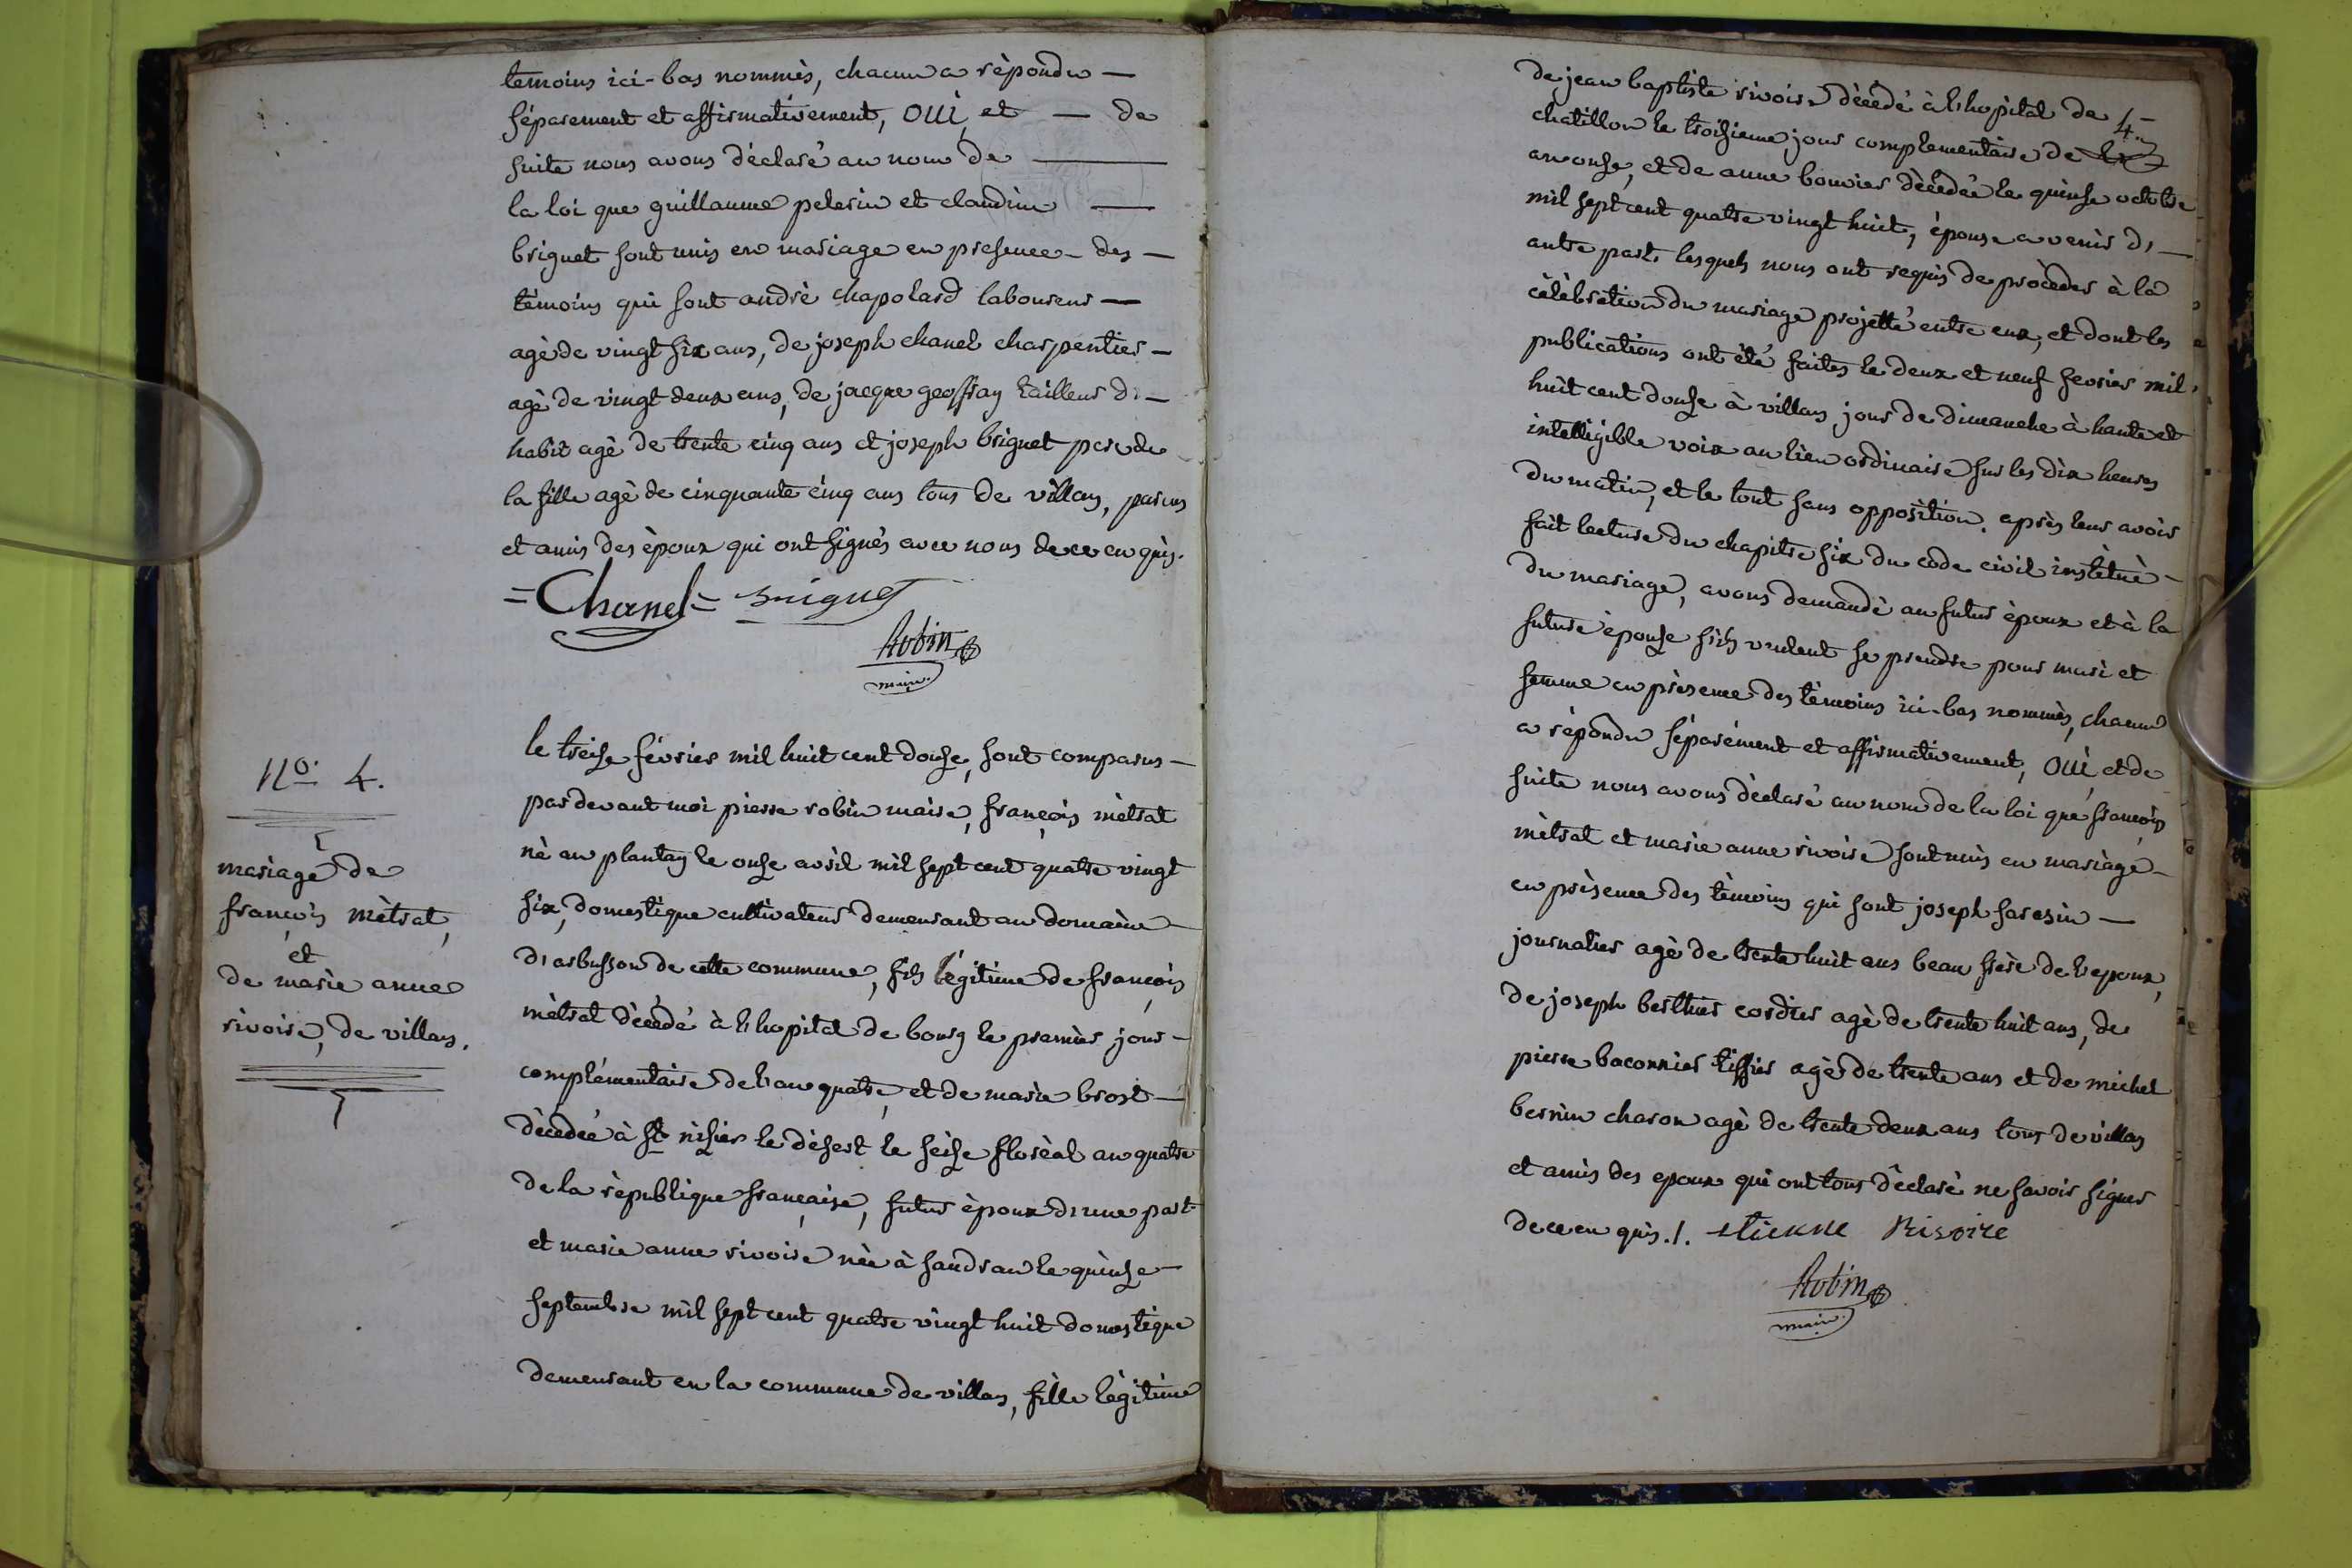 temoins ici-bas nommés, chacun a répondu —
séparement et affirmativement, OUI, et — de
suite nous avons déclaré au nom de —
la loi que guillaume pelerin et claudine —
briguet sont unis en mariage en presence - des —
témoins qui sont andré chapolard laboureur —
agé de vingt six ans, de joseph chanel charpentier —
agé de vingt deux ans, de jacque geoffray tailleur d' —
habit agé de trente cinq ans et joseph briguet pere de
la fille agé de cinquante cinq ans tous de villars, parens
et amis des époux qui ont signés avec nous de ce enquis.
= Chanel = Briguet
Robin
maire
No. 4.
mariage de
françois métrat,
et
de marie anne
rivoire, de villars.
le treise février mil huit cent douse, sont comparus —
par devant moi pierre robin maire, françois métrat
né au plantay le onse avril mil sept cent quatre vingt
six, domestique cultivateur demeurant au domaine —
d'arbusson de cette commune, fils légitime de françois
métrat décédé à l'hopital de bourg le premier jour —
complémentaire de l'an quatre, et de marie brost —
décédée à st nisier le désert le seise floréal an quatre
de la république française, futur époux d'une part
et marie anne rivoire née à sandran le quinse —
septembre mil sept cent quatre vingt huit domestique
demeurant en la commune de villars, fille légitime
4.
de jean baptiste rivoire décédé à l'hopital de
chatillon le troisieme jour complementaire de
an onse, et de anne bouvier décédée le quinse octobre
mil sept cent quatre vingt huit, épouse a venir d' —
autre part, lesquels nous ont requis de procéder à la
célébration du mariage projetté entre eux, et dont les
publications ont été faites le deux et neuf fevrier mil
huit cent douse à villars jour de dimanche à haute et
intelligible voix au lieu ordinaire sur les dix heures
du matin, et le tout sans opposition. après leur avoir
fait lecture du chapitre six du code civil institué —
du mariage, avons demandé au futur époux et à la
future épouse s'ils veulent se prendre pour mari et
femme en présence des témoins ici-bas nommés, chacun
a répondu séparément et affirmativement, OUI, et de
suite nous avons déclaré au nom de la loi que françois
métrat et marie anne rivoire sont unis en mariage —
en présence des témoins qui sont joseph saresin —
journalier agé de trente huit ans beau frere de l'epoux,
de joseph berthier cordier agé de trente huit ans, de
pierre baconnier tissier agé de trente ans et de michel
bernin charon agé de trente deux ans tous de villars
et amis des epoux qui ont tous déclaré ne savoir signer
de ce enquis ./. etienne Risoire
Robin
maire